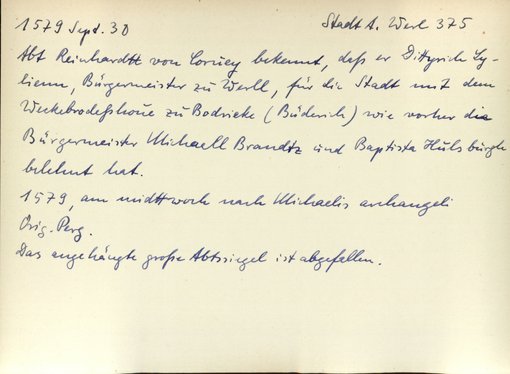 1579 Sept. 30 Stadt A. Werl 375
Abt Reinhardtt von Corvey bekennt, daß er Dittyrich Ly-
lienn, Bürgermeister zu Werll, für die Stadt mit dem
Weckebrodeßhove zu Bodrieke (Büderich) wie vorher die
Bürgermeister Michaell Brandtz und Baptista Hülsbergh
belehnt hat.
1579, am midttwoch nach Michaelis archangeli
Orig. Perg.
Das angehängte große Abtssiegel ist abgefallen.